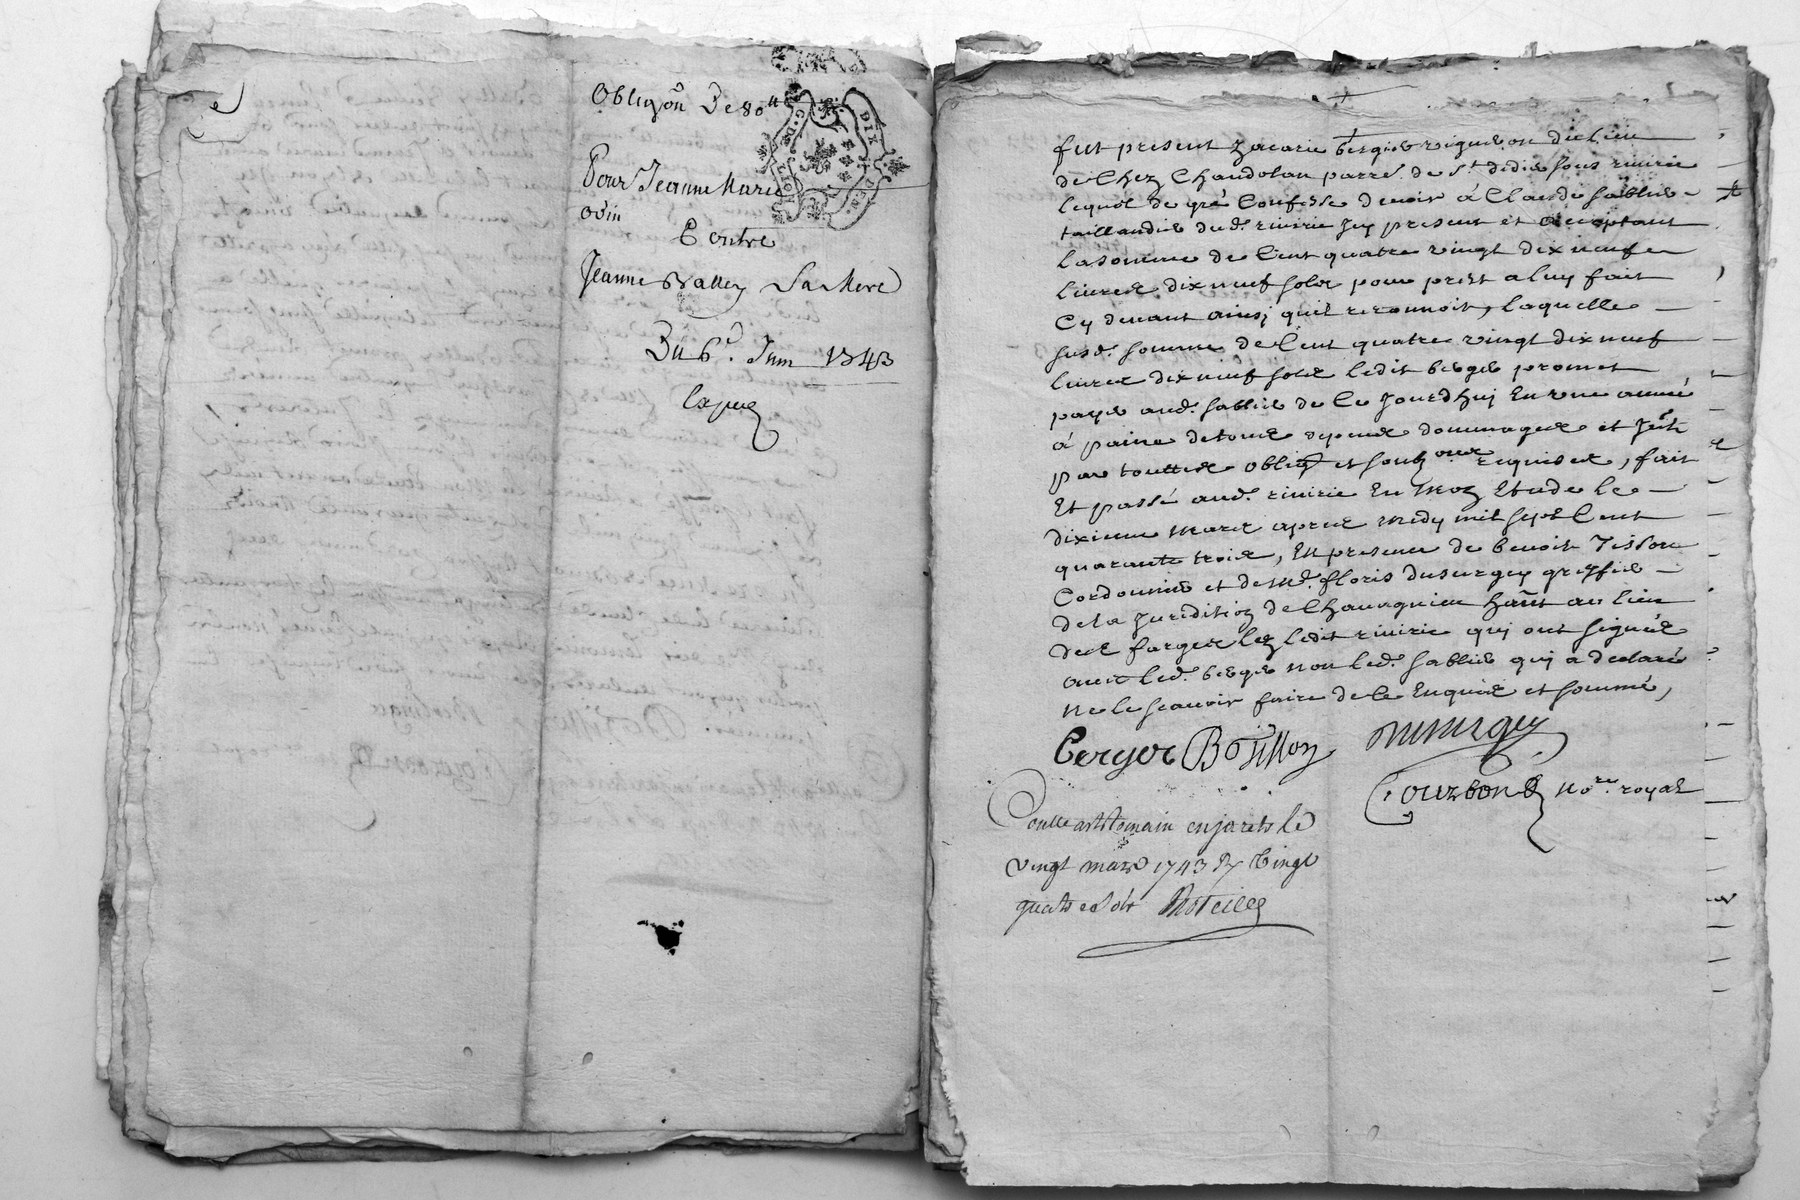 Obligaõn De 80ᵗᵗ
Pour Jeanne Marie
odin
Contre
Jeanne Valley Sa Mere
Du 6ᵉ. Juin 1743
Exped
G. DE LYON
DIX DEN.
fut present Zacarie berger vigneron du lieu
de Chez Chaudolan parr.ᵉ de Sᵗ. didier sous riuirie
lequel de gré Confesse deuoir á Claude sablier
taillandier dud. riuirie Jcy present et acceptant
la somme de Cent quatre vingt dix neuf
liures dix neuf sols pour prest a luy fait
Cy deuant ainsj quil reconnoit, laquelle
susd. somme de Cent quatre vingt dix neuf
liures dix neuf sols ledit berger promet
payer aud. sablier de Ce Jourdhuj En vne anneé
á paine de tous depens dommages et Jntᵗˢ
par touttes obligõn et soubzõns requises, fait
Et passé aud. riuirie En moy Etude le
dixieme mars apres midy mil sept Cent
quarante trois, En presence de benoit Tisson
Cordonnier et de Mᵉ. floris dusurgey greffier
de la Juridition de Chauagnieu hañt au lieu
des farges lez ledit riuirie qui ont signés
auec led. berger non led. sablier qui a declaré
ne le scauoir faire de Ce Enquis et sommé,
berger B Tisson dusurgey
Gourbon Noʳᵉ. royal
Conllé a sᵗ Romain en jarets le
vingt mars 1743 R/ Vingt
quatre sols